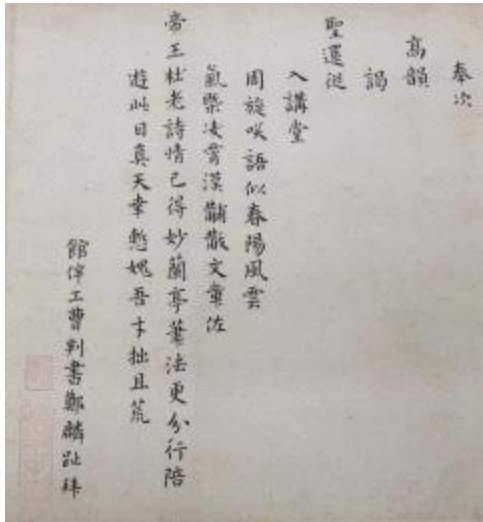 奉次
高韻
謁
聖還從
入講堂
周旋咲語似春陽風雲
氣槩凌霄漢黼黻文章佐
帝王杜老詩情已得妙蘭亭筆法更分行陪
遊此日真天幸慙愧吾才拙且荒
館伴工曹判書鄭麟趾拜